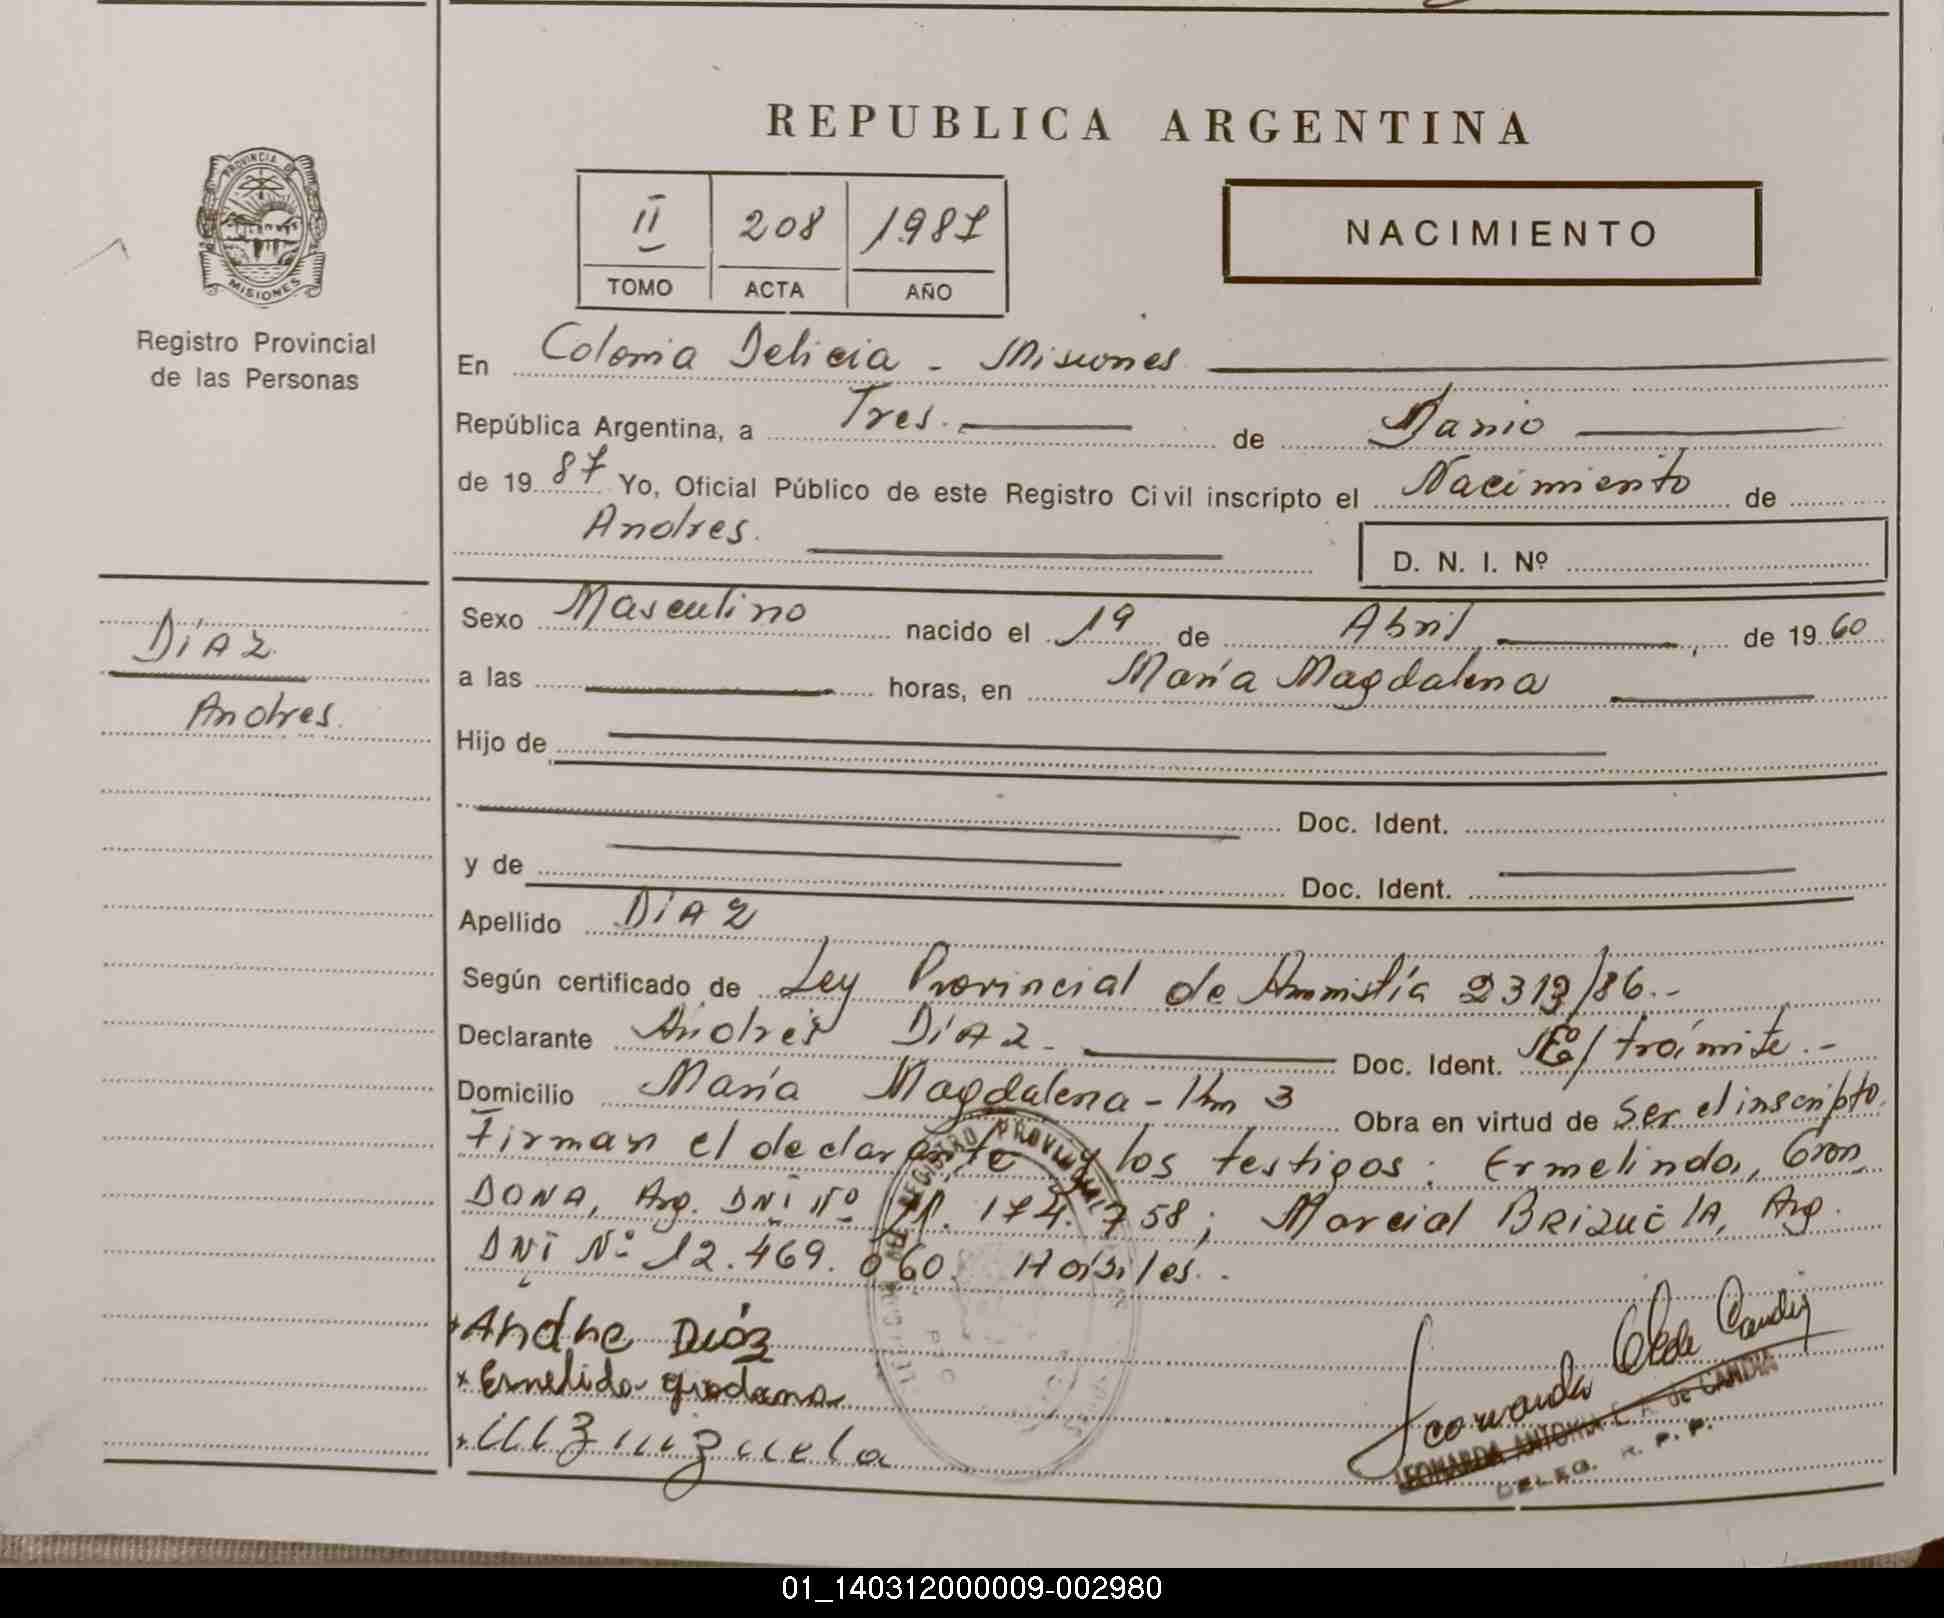 REPUBLICA ARGENTINA
PROVINCIA DE
MISIONES
Registro Provincial
de las Personas
II 208 1987
TOMO ACTA AÑO
NACIMIENTO
En Colonia Delicia - Misiones
República Argentina, a Tres. de Junio
de 1987 Yo, Oficial Público de este Registro Civil inscripto el Nacimiento de
Andres.
D. N. I. Nº
DíAZ
Andres.
Sexo Masculino nacido el 19 de Abril, de 1960
a las horas, en María Magdalena
Hijo de
Doc. Ident.
y de Doc. Ident.
Apellido DíAZ
Según certificado de Ley Provincial de Amnistía 2313/86.-
Declarante Andres DíAZ- Doc. Ident. E/trámite.-
Domicilio María Magdalena - Km 3 Obra en virtud de Ser el inscripto.
Firman el declarante y los testigos: Ermelinda, Gron
DONA, Arg. DNI Nº 174.758; Marcial BRIZUELA, Arg.
DNI Nº 12.469.060. Hábiles.
REGISTRO PROVINCIAL
Andre Dióz
Ermelido grodona
Leonarda de Candia
LEONARDA ANTONIA E. A. de CANDIA
DELEG. R. P. P.
01_140312000009-002980